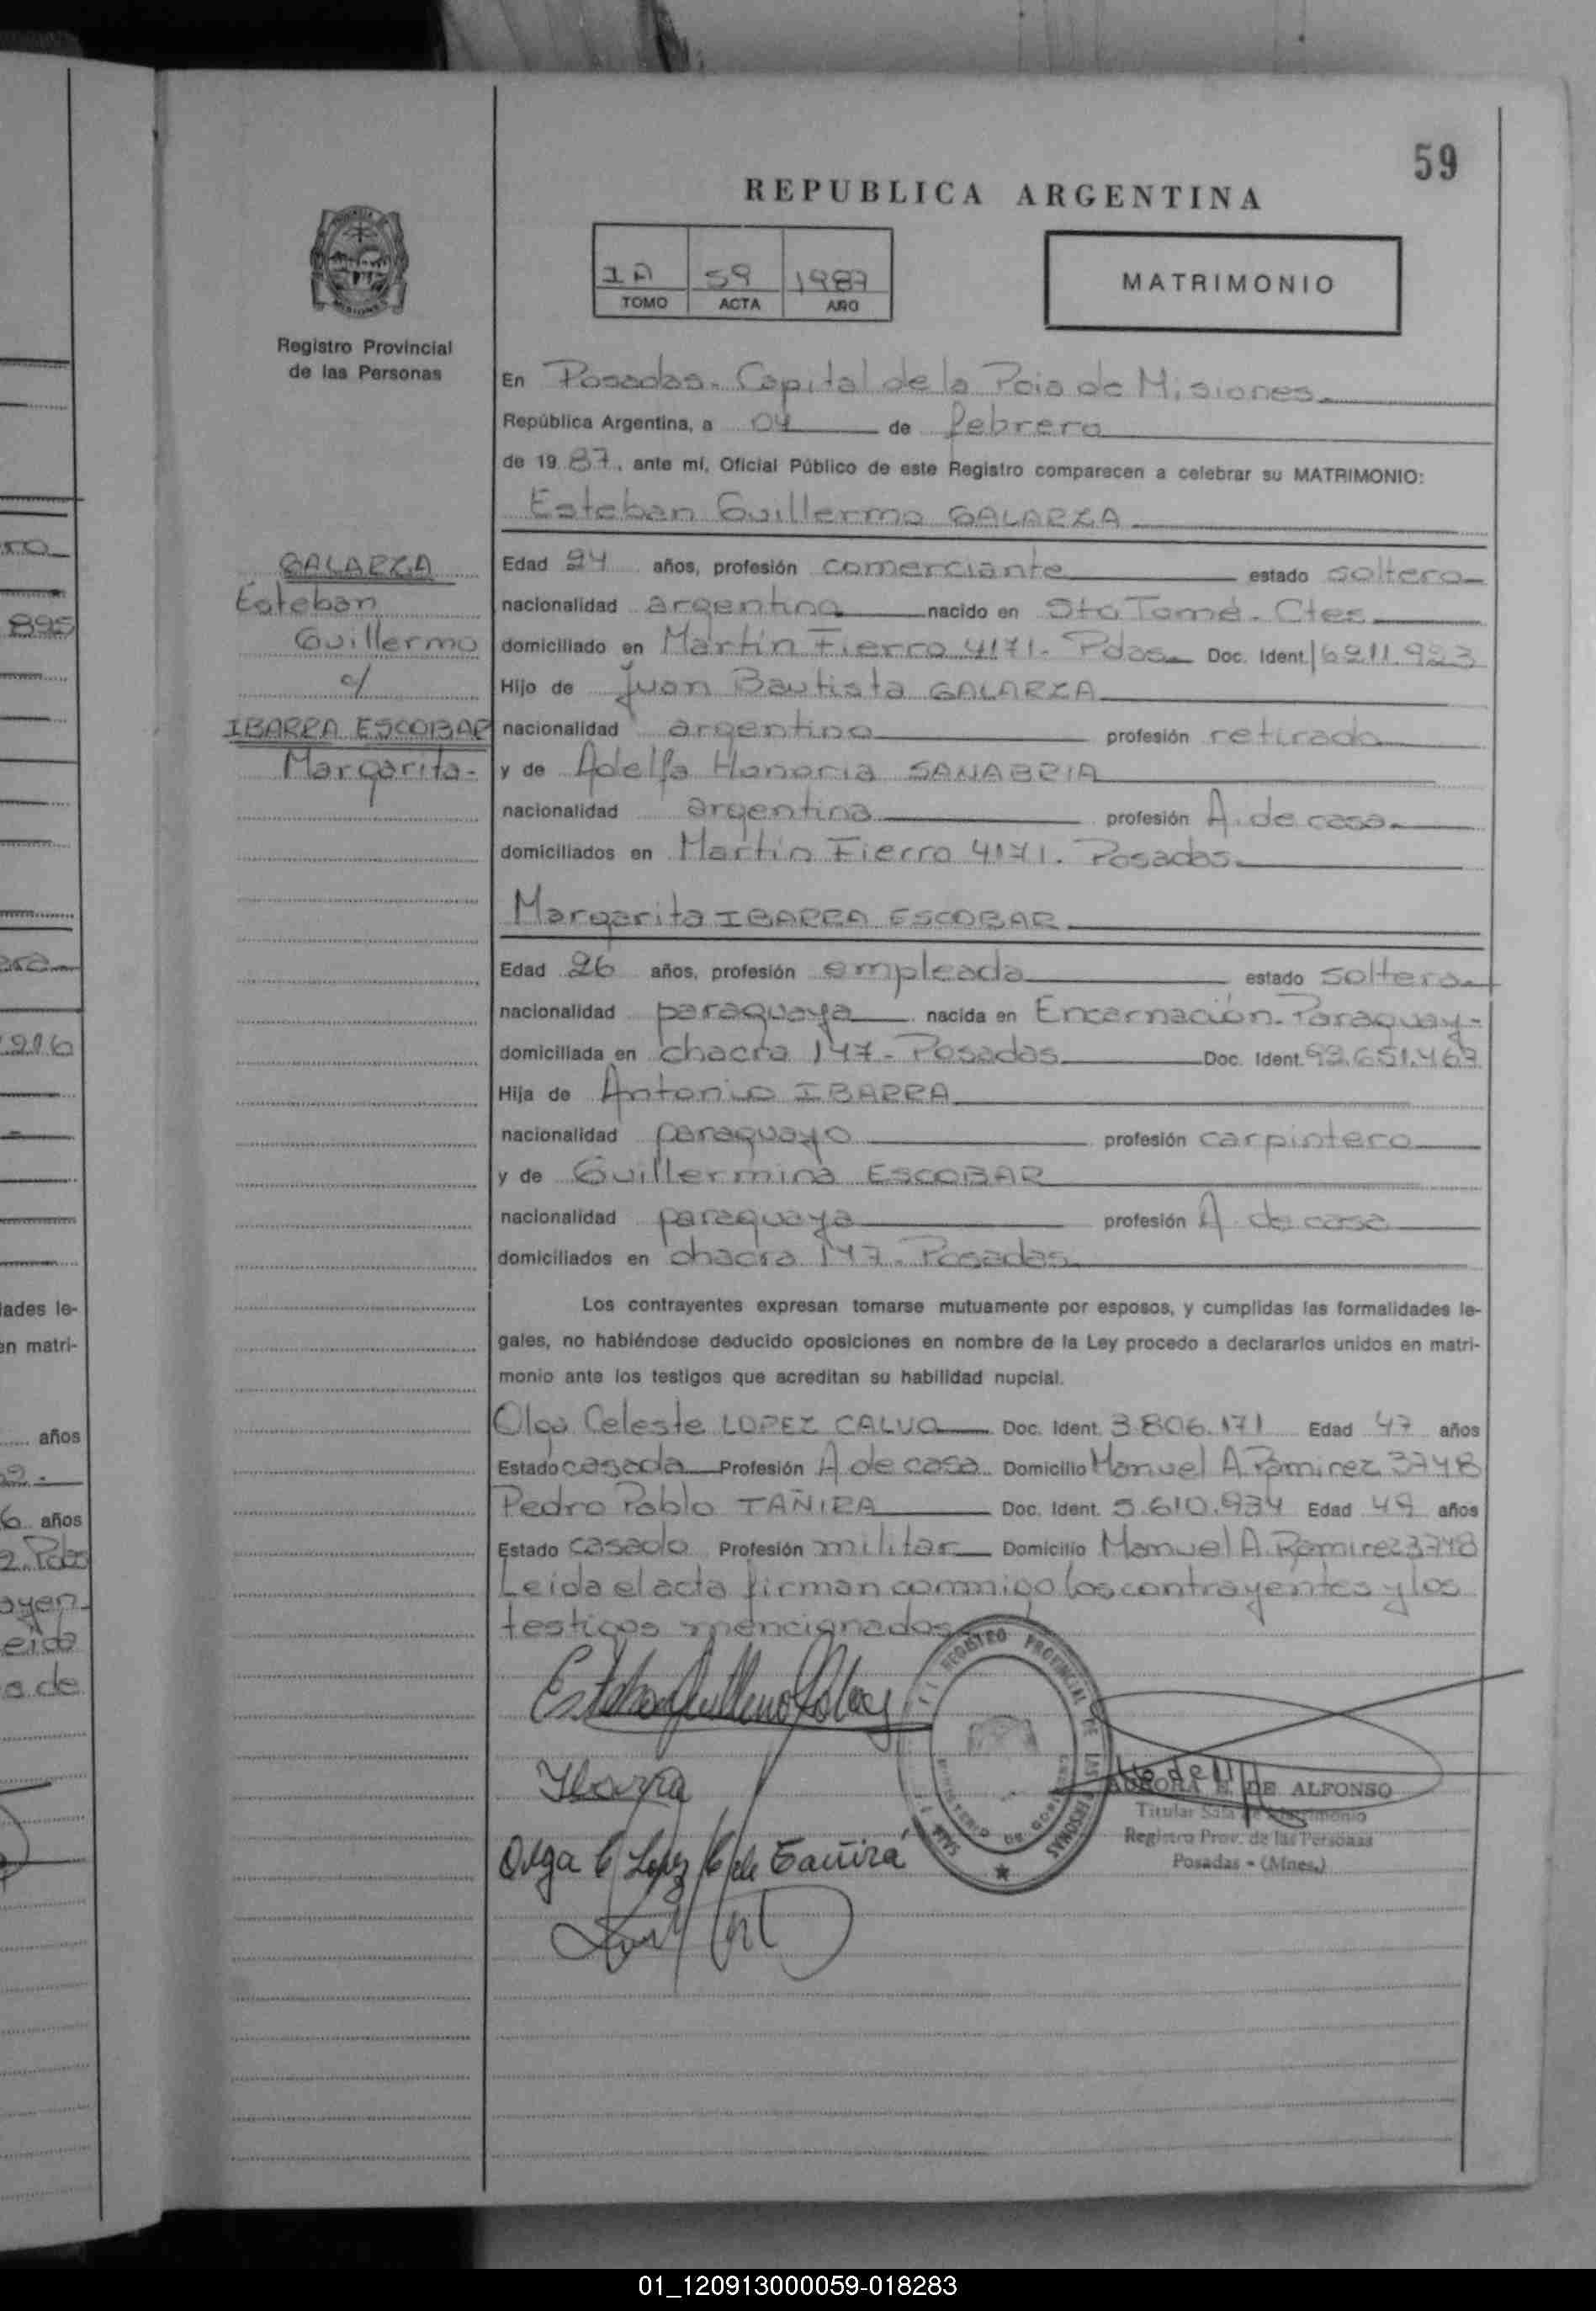 59
REPUBLICA ARGENTINA
1A 59 1987
TOMO ACTA AÑO
MATRIMONIO
Registro Provincial
de las Personas
En Posadas - Capital de la Pcia de Misiones
República Argentina, a 04 de febrero
de 19 87, ante mí, Oficial Público de este Registro comparecen a celebrar su MATRIMONIO:
Esteban Guillermo GALARZA
GALARZA
Esteban
Guillermo
c/
IBARRA ESCOBAR
Margarita-
Edad 24 años, profesión comerciante estado soltero
nacionalidad argentina nacido en Sto Tomé - Ctes
domiciliado en Martín Fierro 4171 - Pdas Doc. Ident. 16211.923
Hijo de Juan Bautista GALARZA
nacionalidad argentino profesión retirado
y de Adelfa Honoria SANABRIA
nacionalidad argentina profesión A. de casa
domiciliados en Martín Fierro 4171. Posadas
Margarita IBARRA ESCOBAR
Edad 26 años, profesión empleada estado soltera
nacionalidad paraguaya nacida en Encarnación - Paraguay-
domiciliada en chacra 147 - Posadas Doc. Ident. 92.651.463
Hija de Antonio IBARRA
nacionalidad paraguayo profesión carpintero
y de Guillermina ESCOBAR
nacionalidad paraguaya profesión A. de casa
domiciliados en chacra 147 - Posadas
Los contrayentes expresan tomarse mutuamente por esposos, y cumplidas las formalidades le-
gales, no habiéndose deducido oposiciones en nombre de la Ley procedo a declararlos unidos en matri-
monio ante los testigos que acreditan su habilidad nupcial.
Olga Celeste LOPEZ CALVO Doc. Ident. 3.806.171 Edad 47 años
Estado casada Profesión A de casa Domicilio Manuel A Ramirez 3748
Pedro Pablo TAÑIRA Doc. Ident. 5.610.934 Edad 49 años
Estado casado Profesión militar Domicilio Manuel A. Ramirez 3748
Leida el acta firman conmigo los contrayentes y los
testigos mencionados
Esteban Guillermo Galarza
Ibarra
Olga C Lopez C de Tañira
REGISTRO PROVINCIAL DE LAS PERSONAS
MINISTERIO DE GOBIERNO
AURORA E. DE ALFONSO
Titular Sala de Matrimonio
Registro Prov. de las Personas
Posadas - (Mnes.)
895
216
ades le-
en matri-
años
6 años
01_120913000059-018283